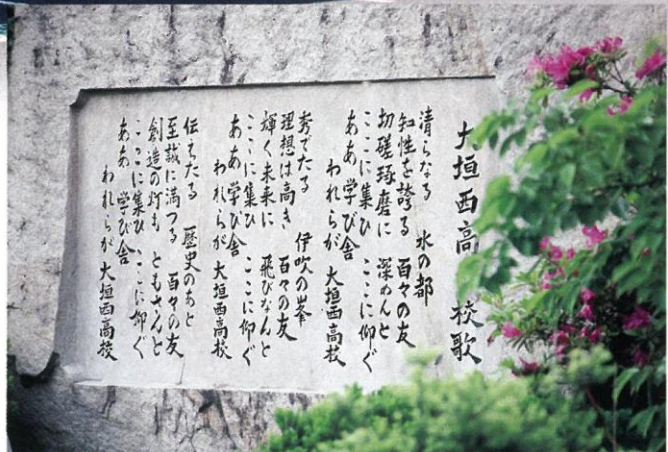 大垣西高 校歌
清らなる 水の都
知性を誇る 百々の友
切磋琢磨に 深めんと
ここに集ひ ここに仰ぐ
ああ 学び舎
われらが 大垣西高校
秀でたる 伊吹の峯
理想は高き 百々の友
輝く未来に 飛びなんと
ここに集ひ ここに仰ぐ
ああ 学び舎
われらが 大垣西高校
伝えたる 歴史のあと
至誠に満つる 百々の友
創造の灯も ともさんと
ここに集ひ ここに仰ぐ
ああ 学び舎
われらが 大垣西高校